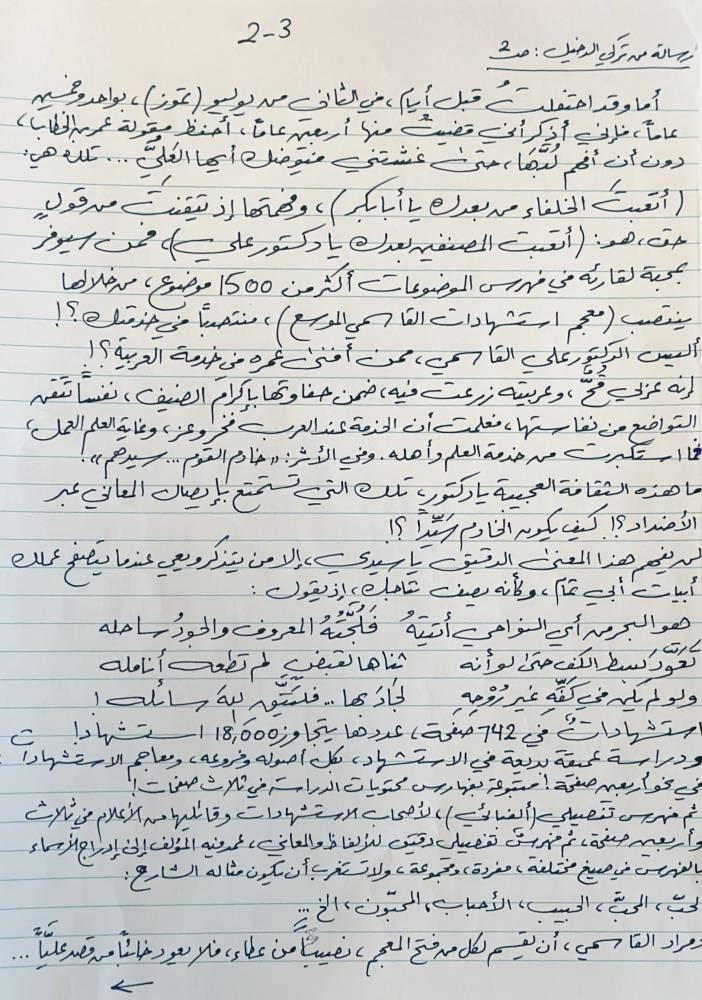 2-3
رسالة من تركي الدخيل: ص2
أما وقد احتفلتُ قبل أيام، في الثاني من يوليو (تموز)، بواحد وخمسين
عاماً، فإني أذكر أني قضيتُ منها أربعين عاماً، أحفظ مقولة عمر بن الخطاب،
دون أن أفهم لُبَّها، حتىٰ غشتني فيوضك أيها العَلِيُّ ... تلك هي:
(أتعبتَ الخلفاء من بعدك يا أبا بكر)، وفهمتها إذ تيقنت من قولٍ
حق، هو: (أتعبت المصنفين بعدك يا دكتور علي)، فمن سيوفر
بمحبة لقارئه في فهرس الموضوعات أكثر من 1500 موضوع، من خلالها
ينتصب (معجم استشهادات القاسمي الموسع)، منتصباً في خدمتك؟!
أليس الدكتور علي القاسمي، ممن أفنىٰ عمره في خدمة العربية؟!
إنه عربي قُحٌّ، وعربيته زرعت فيه، ضمن حفاوتها بإكرام الضيف، نفساً تتقن
التواضع من نفاستها، فعلمت أن الخدمة عند العرب فخر وعز، وغاية العلم العمل،
فما استكبرت من خدمة العلم وأهله. وفي الأثر: «خادم القوم ... سيدهم»!
ما هذه الثقافة العجيبة يا دكتور، تلك التي تستمتع بإيصال المعاني عبر
الأضداد؟! كيف يكون الخادم سَيِّداً؟!
لن يفهم هذا المعنىٰ الدقيق يا سيدي، إلا من يتذكر ويعي عندما يتصفح عملك
أبيات أبي تمام، وكأنه يصف نتاجك، إذ يقول:
هو البحر من أي النواحي أتيتهُ فَلُجَّتُهُ المعروف والجودُ ساحله
تعَوَّد بسط الكف حتىٰ لو أنه ثناها لقبضٍ لم تطعه أنامله
ولو لم يكن في كَفِّهِ غير رُوْحِهِ لجادَ بها ... فليَتَّقِ اللهَ سائله!
استشهاداتٌ في 742 صفحة، عددها يتجاوز 18,000 استشهاد!
ودراسة عميقة بديعة في الاستشهاد، بكل أصوله وفروعه، ومعاجم الاستشهادات،
في نحو أربعين صفحة! متبوعة بفهارس محتويات الدراسة في ثلاث صفحات!
ثم فهرس تفصيلي (ألفبائي)، لأصحاب الاستشهادات وقائليها من الأعلام في ثلاث
وأربعين صفحة، ثم فهرسٌ تفصيلي دقيق للألفاظ والمعاني، عمد فيه المؤلف إلىٰ إدراج الأسماء
بالفهرس في صيغ مختلفة، مفردة، ومجموعة، ولا تستغرب أن يكون مثاله الشارح:
لحبّ، المحبّ، الحبيب، الأحباب، المحبّون، الخ ...
ومراد القاسمي، أن يقسم لكل من فتح المعجم، نصيباً من عطاء، فلا يعود خائباً من قصد عَلِيَّاً ...
←